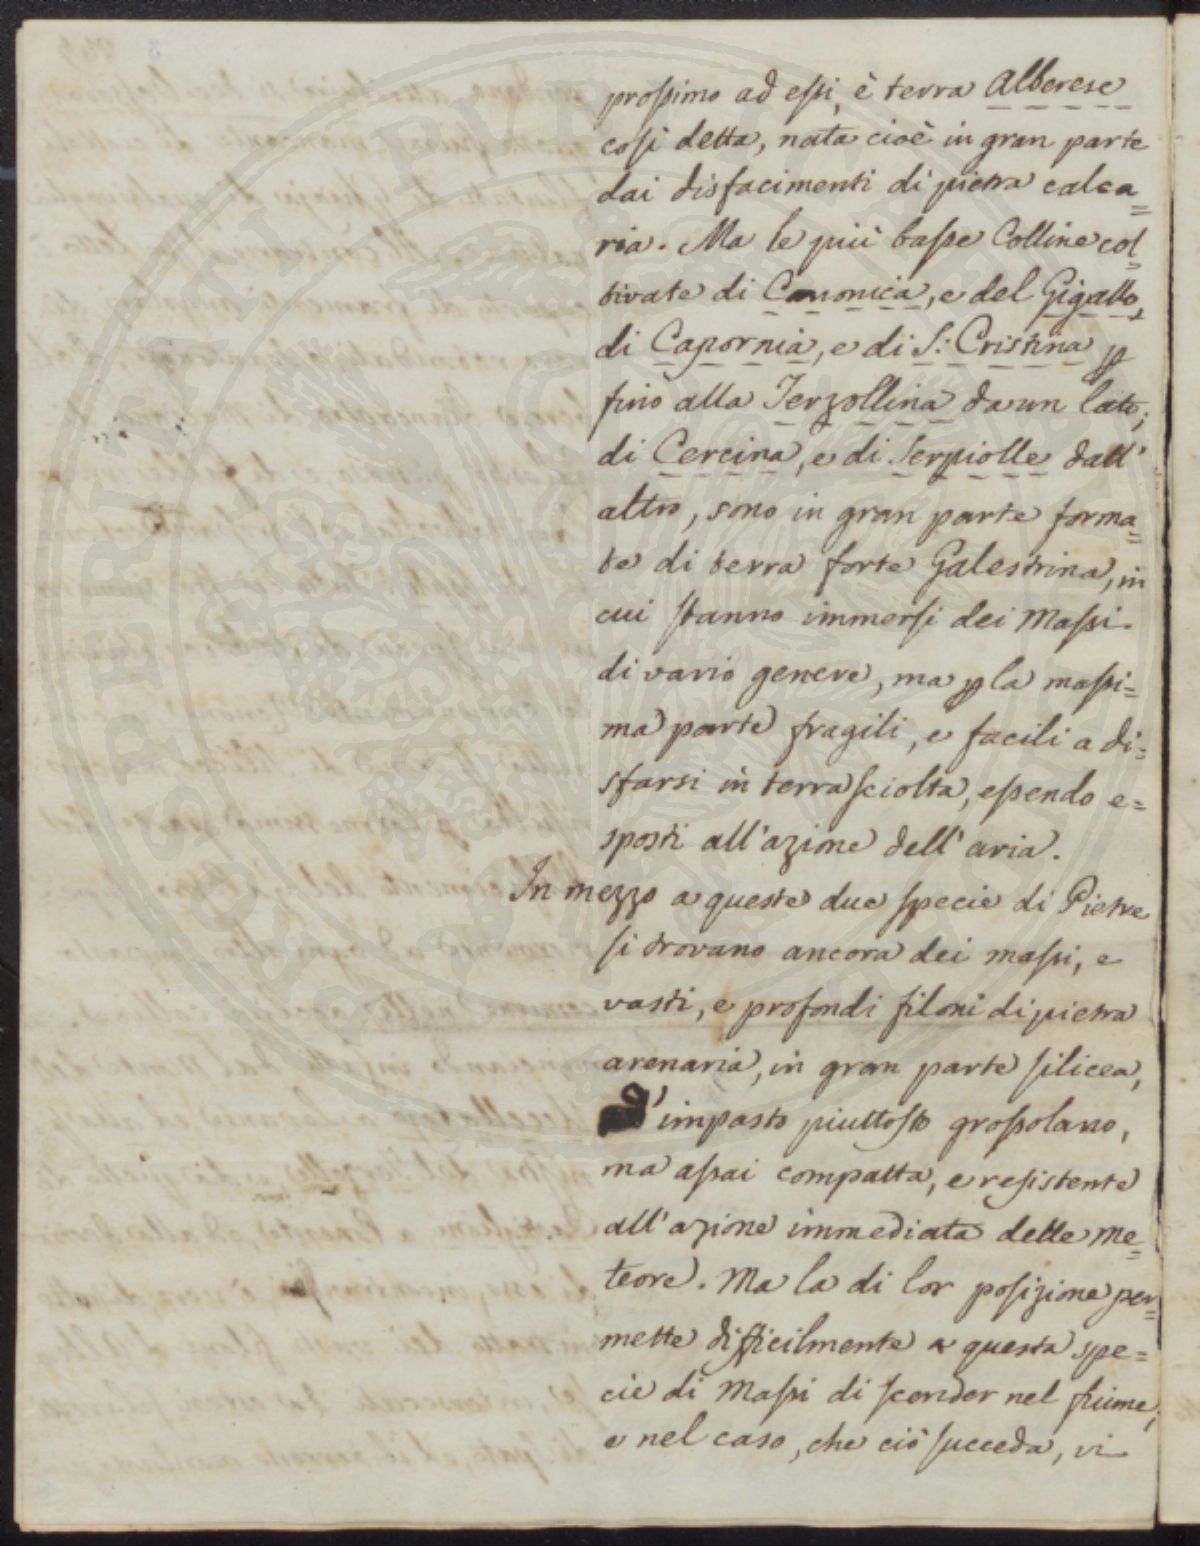 prossimo ad essi, è terra Alberese
così detta, nata cioè in gran parte
dai disfacimenti di pietra calca=
ria. Ma le più basse Colline col=
tivate di Canonica, e del Gigallo,
di Capornia, e di S: Cristina
fino alla Terzollina da un lato;
di Cercina, e di Serpiolle dall'
altro, sono in gran parte forma=
te di terra forte Galestrina, in
cui stanno immersi dei Massi
di vario genere, ma p la massi=
ma parte fragili, e facili a di=
sfarsi in terra sciolta, essendo e=
sposti all'azione dell'aria.
In mezzo a queste due specie di Pietre
si trovano ancora dei massi, e
vasti, e profondi filoni di pietra
arenaria, in gran parte silicea,
d'impasto piuttosto grossolano,
ma assai compatta, e resistente
all'azione immediata delle Me=
teore. Ma la di lor posizione per=
mette difficilmente a questa spe=
cie di Massi di scender nel fiume;
e nel caso, che ciò succeda, vi